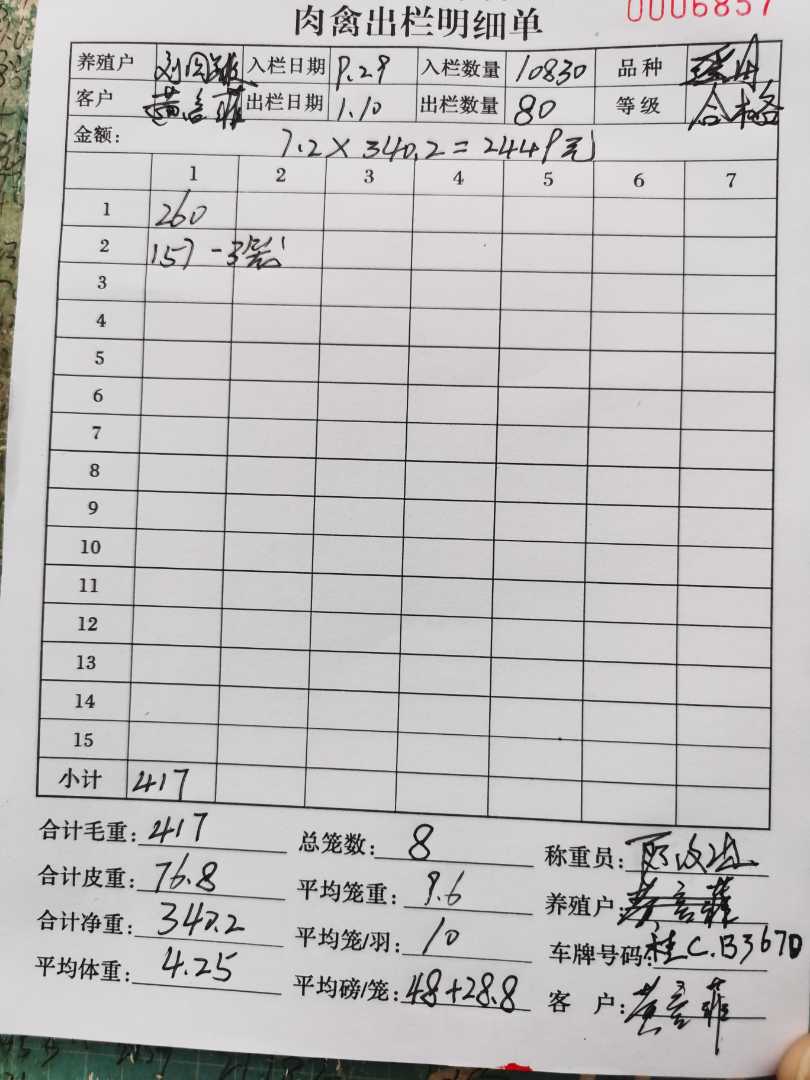 0006857
肉禽出栏明细单
养殖户 入栏日期 9.29 入栏数量 10830 品种
客户 出栏日期 1.10 出栏数量 80 等级 合格
金额: 7.2×340.2=2449元
1 2 3 4 5 6 7
1 260
2 157-3
3
4
5
6
7
8
9
10
11
12
13
14
15
小计 417
合计毛重: 417 总笼数: 8 称重员:
合计皮重: 76.8 平均笼重: 9.6 养殖户:
合计净重: 340.2 平均笼/羽: 10 车牌号码: 桂C.B367D
平均体重: 4.25 平均磅/笼: 48+28.8 客户: